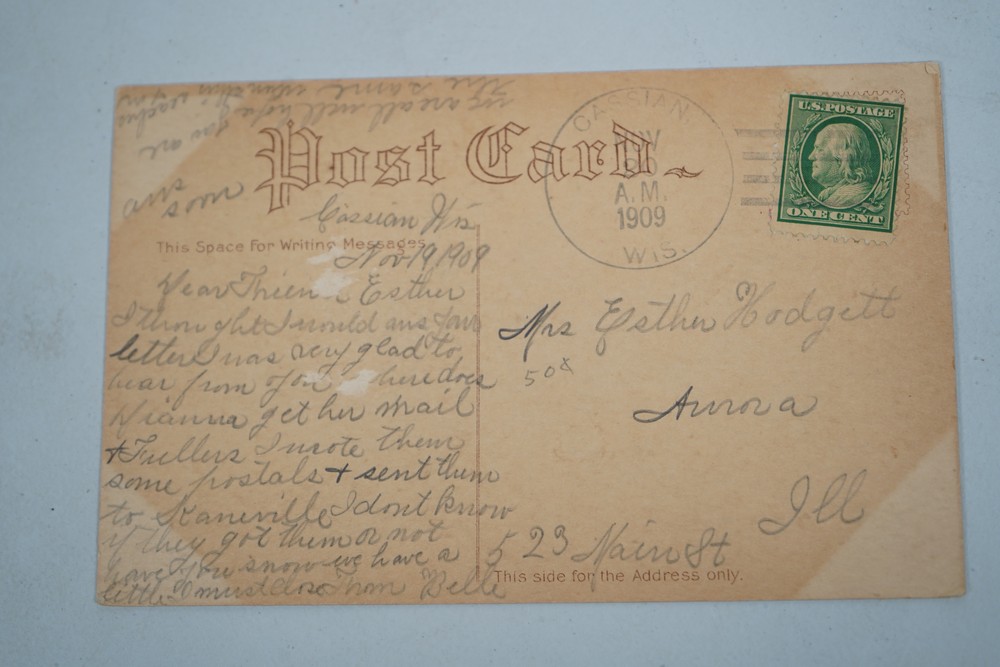 we are all well hope you are
the same
ans
soon
Post Card
CASSIAN
A.M.
1909
WIS.
U.S. POSTAGE
ONE CENT
Cassian Wis
This Space for Writing Messages
Nov 19 1909
Dear Friend Esther
I thought I would ans your
letter was very glad to
hear from you here does
Dianna get her mail
+ Fullers I wrote them
some postals + sent them
to Kaneville I dont know
if they got them or not
have you snow we have a
little I must close From Belle
Mrs Esther Hodgett
50¢
Aurora
Ill
523 Main St
This side for the Address only.